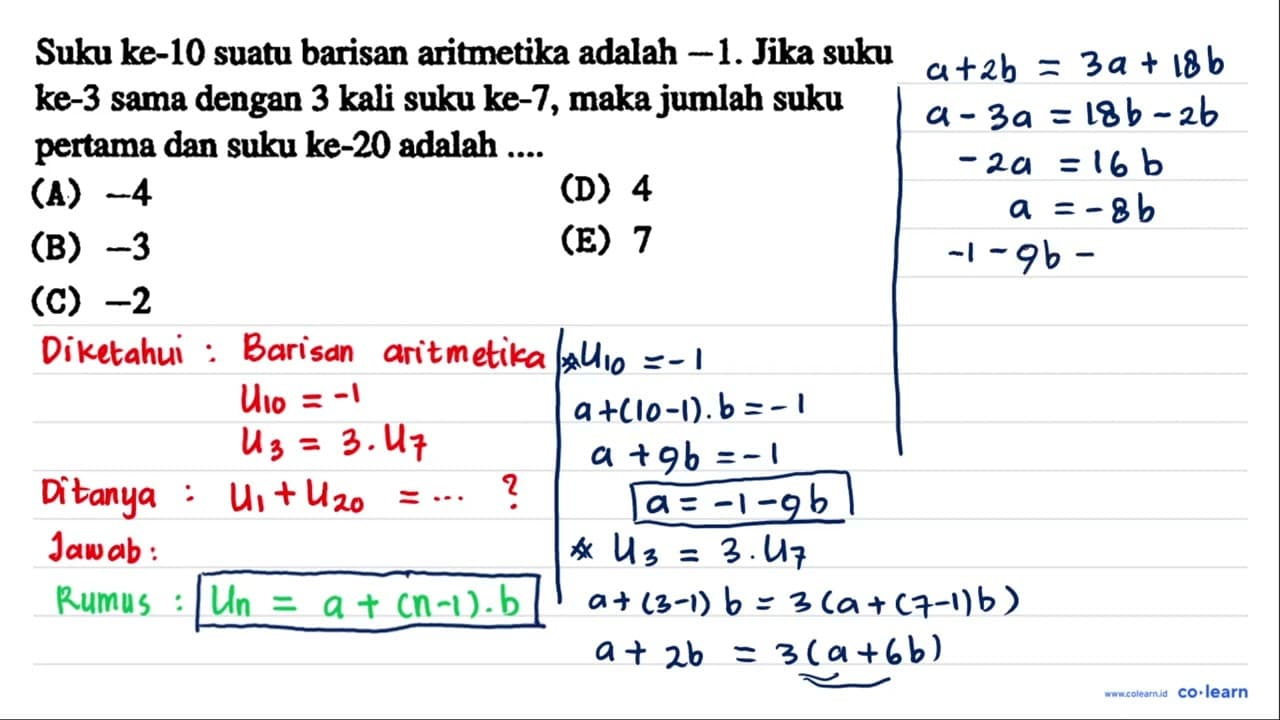 Suku ke-10 suatu barisan aritmetika adalah −1. Jika suku
ke-3 sama dengan 3 kali suku ke-7, maka jumlah suku
pertama dan suku ke-20 adalah ....
(A) −4
(B) −3
(C) −2
(D) 4
(E) 7
Diketahui : Barisan aritmetika
U10 = -1
U3 = 3.U7
Ditanya : U1 + U20 = ... ?
Jawab :
Rumus : Un = a + (n-1).b
*U10 = -1
a+(10-1).b = -1
a + 9b = -1
a = -1-9b
* U3 = 3.U7
a+(3-1) b = 3(a+(7-1)b)
a + 2b = 3(a+6b)
a+2b = 3a+18b
a - 3a = 18b - 2b
-2a = 16b
a = -8b
-1 - 9b -
www.colearn.id co·learn